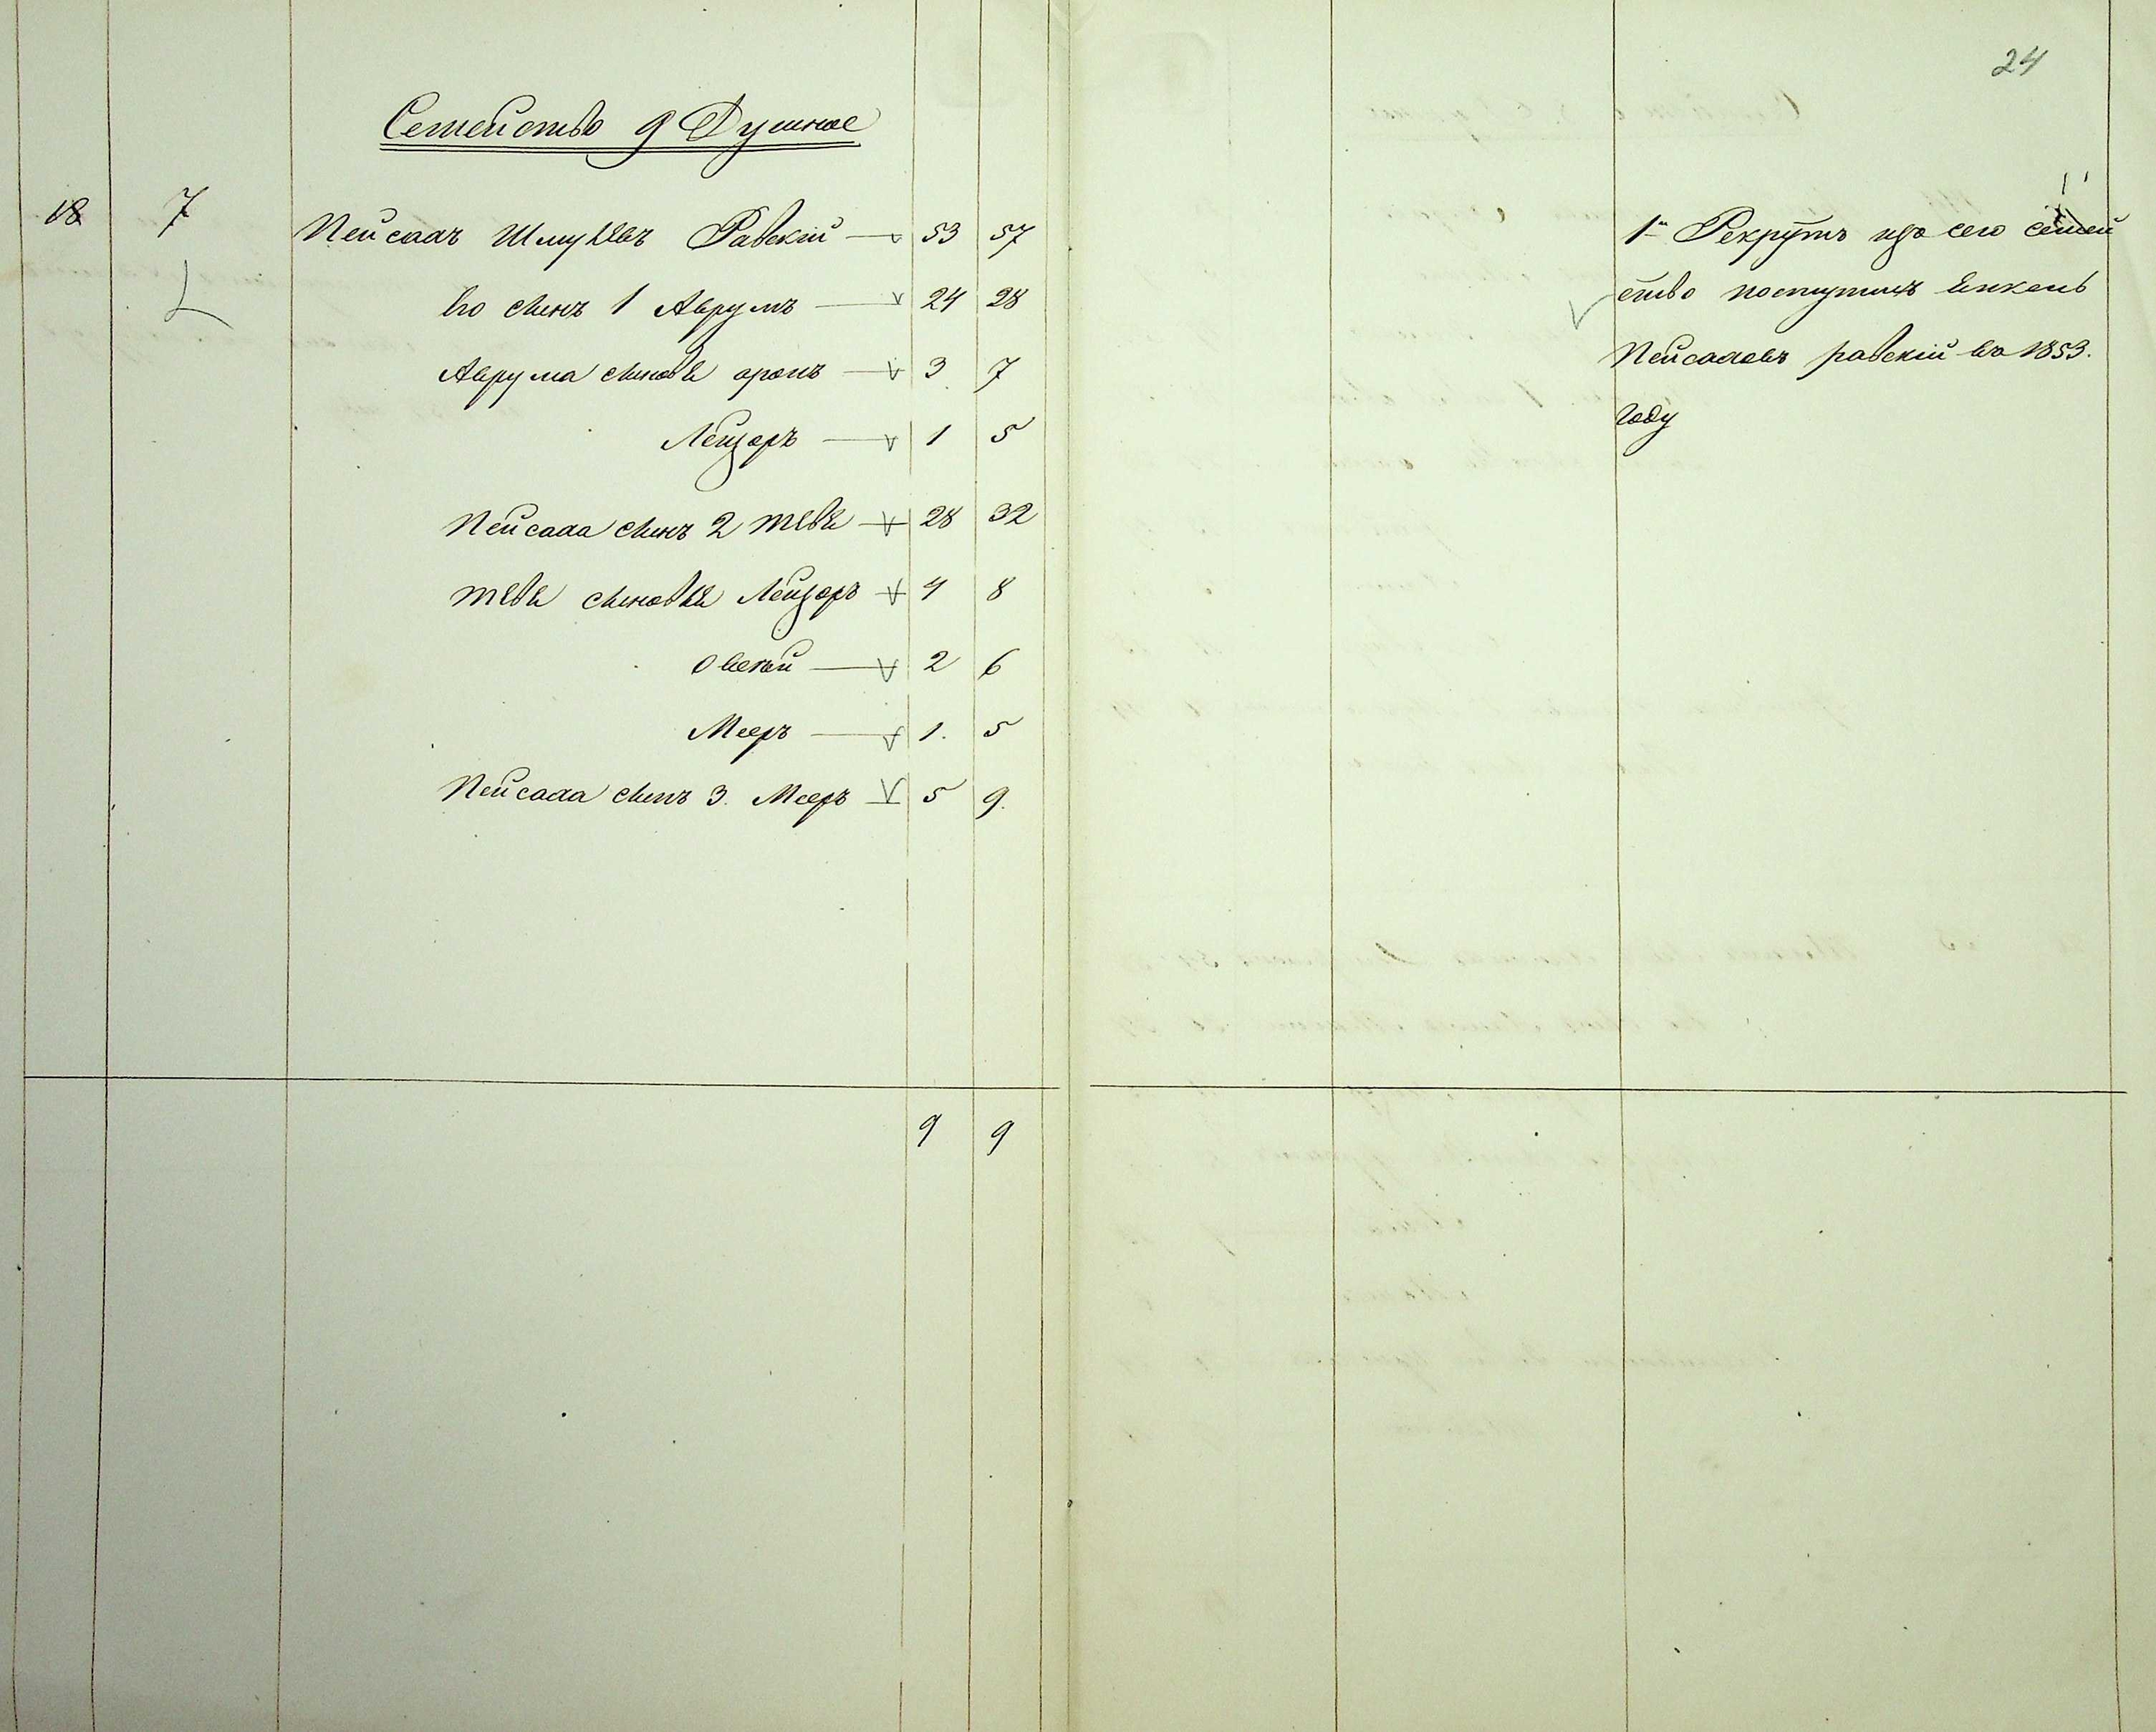 24
Семейство 9 Душное
18 7 Пейсахъ Шмуйловъ Равскій 53 57
Его сынъ 1 Аврумъ 24 28
Аврума сыновья Аронъ 3 7
Лейзоръ 1 5
Пейсаха сынъ 2 28 32
сыновья Лейзоръ 4 8
Овсей 2 6
Мееръ 1. 5
Пейсаха сынъ 3. Мееръ 5 9.
9 9
1й Рекрутъ изъ сего семей
ство поступилъ Енкель
Пейсаховъ равскій въ 1853.
году